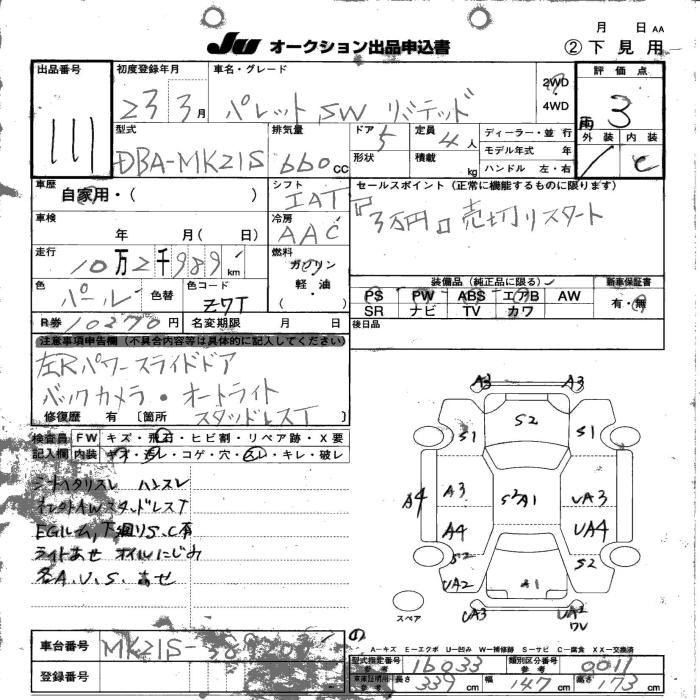 月 日 AA
JU オークション出品申込書
② 下見用
出品番号
111
初度登録年月
23 3月
車名・グレード
パレット SW リミテッド
2WD
4WD
評価点
3
外装 内装
C
型式
DBA-MK21S
排気量
660cc
ドア 5
形状
定員 4人
積載 kg
ディーラー・並行
モデル年式 年
ハンドル 左・右
車歴
自家用・( )
シフト
IAT
セールスポイント (正常に機能するものに限ります)
『3万円』売切りスタート
車検
年 月(日)
冷房
AAC
走行
10万2千989km
燃料
ガソリン
軽油・
( )
色
パール
色替
色コード
Z7T
装備品(純正品に限る)
PS PW ABS エアB AW
SR ナビ TV カワ
新車保証書
有・無
R券 10270円
名変期限 月 日
後日品
注意事項申告欄(不具合内容等は具体的に記入してください)
左Rパワースライドドア
バックカメラ・オートライト
スタッドレスT
修復歴 有 [箇所 ]
検査員記入欄
FW キズ・飛石・ヒビ割・リペア跡・X要
内装 キズ・汚レ・コゲ・穴・スレ・キレ・破レ
シートヘタリスレ ハンスレ
スタッドレスT
EGルーム,下廻りS.C有
ライトあせ オイルにじみ
各A.U.S.あせ
A3 A3
S2
S1 S1
A4 A3 S2A1 UA3
A4 UA4
S2 S2
UA2 A1
UA3 UA2
スペア
A－キズ E－エクボ U－凹み W－補修跡 S－サビ C－腐食 XX－交換済
車台番号
MK21S-
登録番号
型式指定番号 参考 16033
類別区分番号 参考 0011
車庫証明用 参考 長さ 339cm 幅 147cm 高さ 173cm